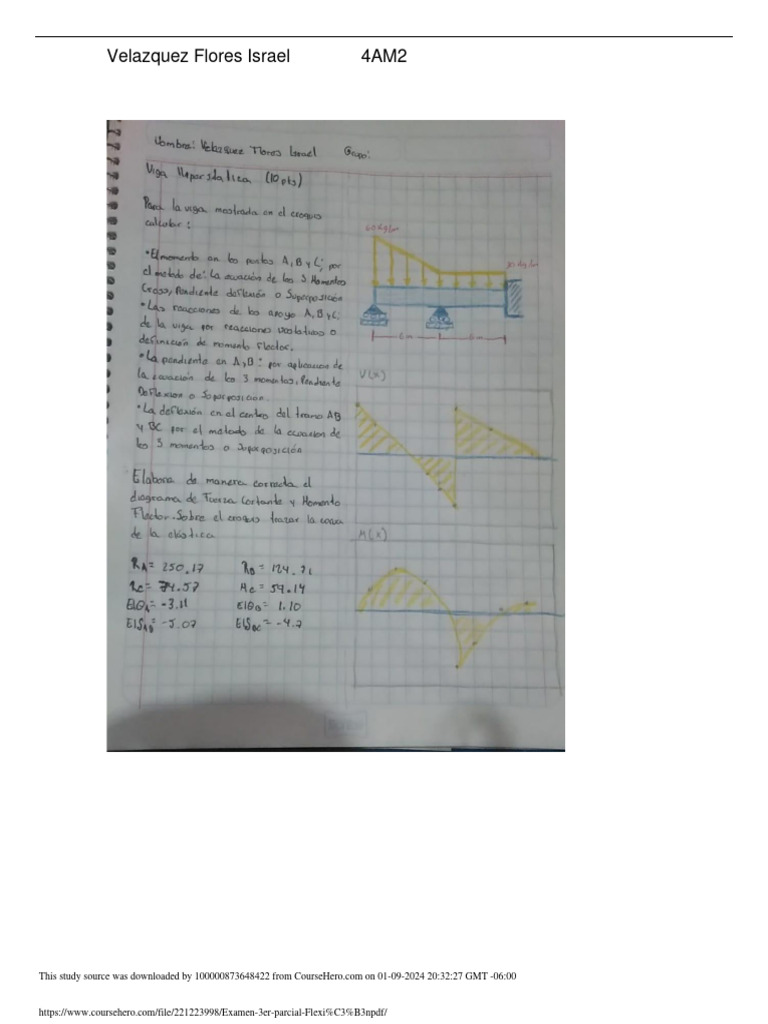 Velazquez Flores Israel 4AM2
Nombre: Velazquez Flores Israel Grupo:
Viga (10 pts)
Para la viga mostrada en el croquis
calcular:
• El momento en los puntos A, B y C; por
el metodo de: La ecuación de los 3 Momentos
Cross, Pendiente deflexión o Superposición
• Las reacciones de los apoyo A, B y C;
de la viga por reacciones o
definición de momento flector.
• La pendiente en A y B: por aplicacion de
la ecuación de los 3 momentos, Pendiente
Deflexion o Superposicion.
• La deflexión en el centro del tramo AB
y BC por el metodo de la ecuacion de
los 3 momentos o Superposición
Elabora de manera correcta el
diagrama de Fuerza Cortante y Momento
Flector. Sobre el croquis trazar la
de la elástica
RA = 250.17
RC = 74.57
EIθA = -3.11 EIθB = 1.10
kg/m
kg/m
6 m
V(x)
M(x)
This study source was downloaded by 100000873648422 from CourseHero.com on 01-09-2024 20:32:27 GMT -06:00
https://www.coursehero.com/file/221223998/Examen-3er-parcial-Flexi%C3%B3npdf/